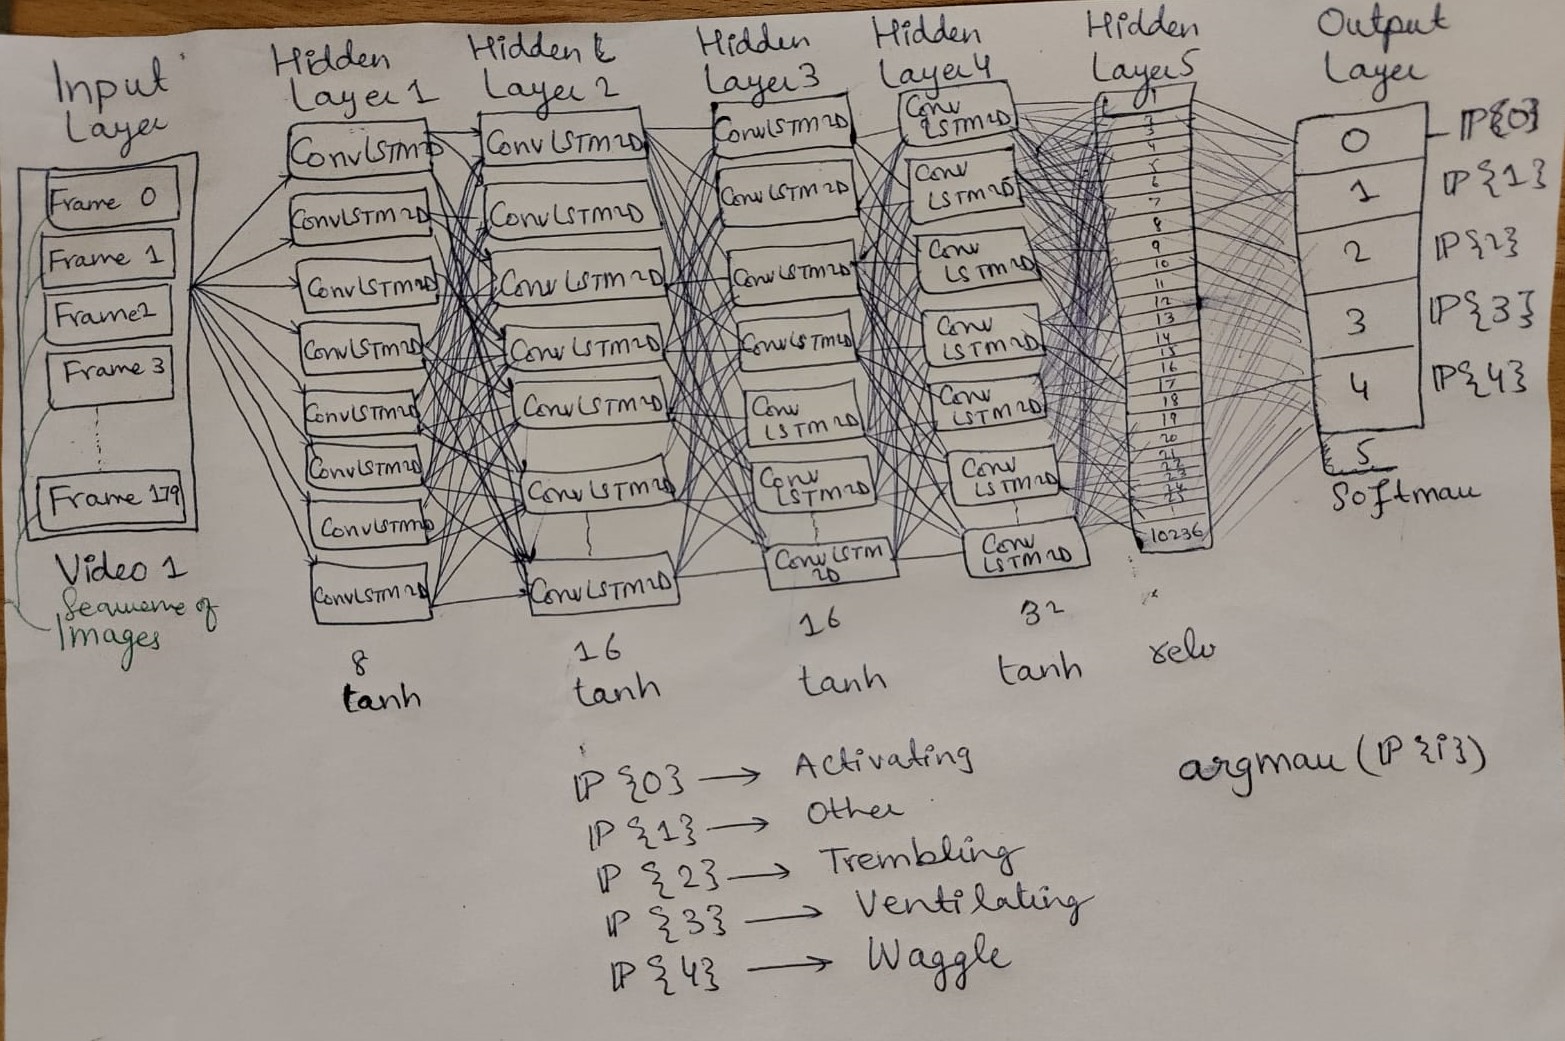 Input
Layer
Frame 0
Frame 1
Frame2
Frame 3
Frame 179
Video 1
Sequence of
Images
Hidden
Layer 1
ConvLSTM2D
ConvLSTM2D
ConvLSTM2D
ConvLSTM2D
ConvLSTM2D
ConvLSTM2D
ConvLSTM2D
ConvLSTM2D
8
tanh
Hidden
Layer 2
ConvLSTM2D
ConvLSTM2D
ConvLSTM2D
ConvLSTM2D
ConvLSTM2D
ConvLSTM2D
ConvLSTM2D
16
tanh
Hidden
Layer 3
ConvLSTM2D
ConvLSTM2D
ConvLSTM2D
ConvLSTM2D
Conv
LSTM2D
Conv
LSTM2D
ConvLSTM
2D
16
tanh
Hidden
Layer 4
Conv
LSTM2D
Conv
LSTM2D
Conv
LSTM2D
Conv
LSTM2D
Conv
LSTM2D
Conv
LSTM2D
Conv
LSTM2D
32
tanh
Hidden
Layer 5
1
2
3
4
5
6
7
8
9
10
11
12
13
14
15
16
17
18
19
20
21
22
23
24
25
10236
relu
Output
Layer
0
1
2
3
4
5
Softmax
ℙ{0}
ℙ{1}
ℙ{2}
ℙ{3}
ℙ{4}
ℙ{0} → Activating
ℙ{1} → Other
ℙ{2} → Trembling
ℙ{3} → Ventilating
ℙ{4} → Waggle
argmax (ℙ{i})